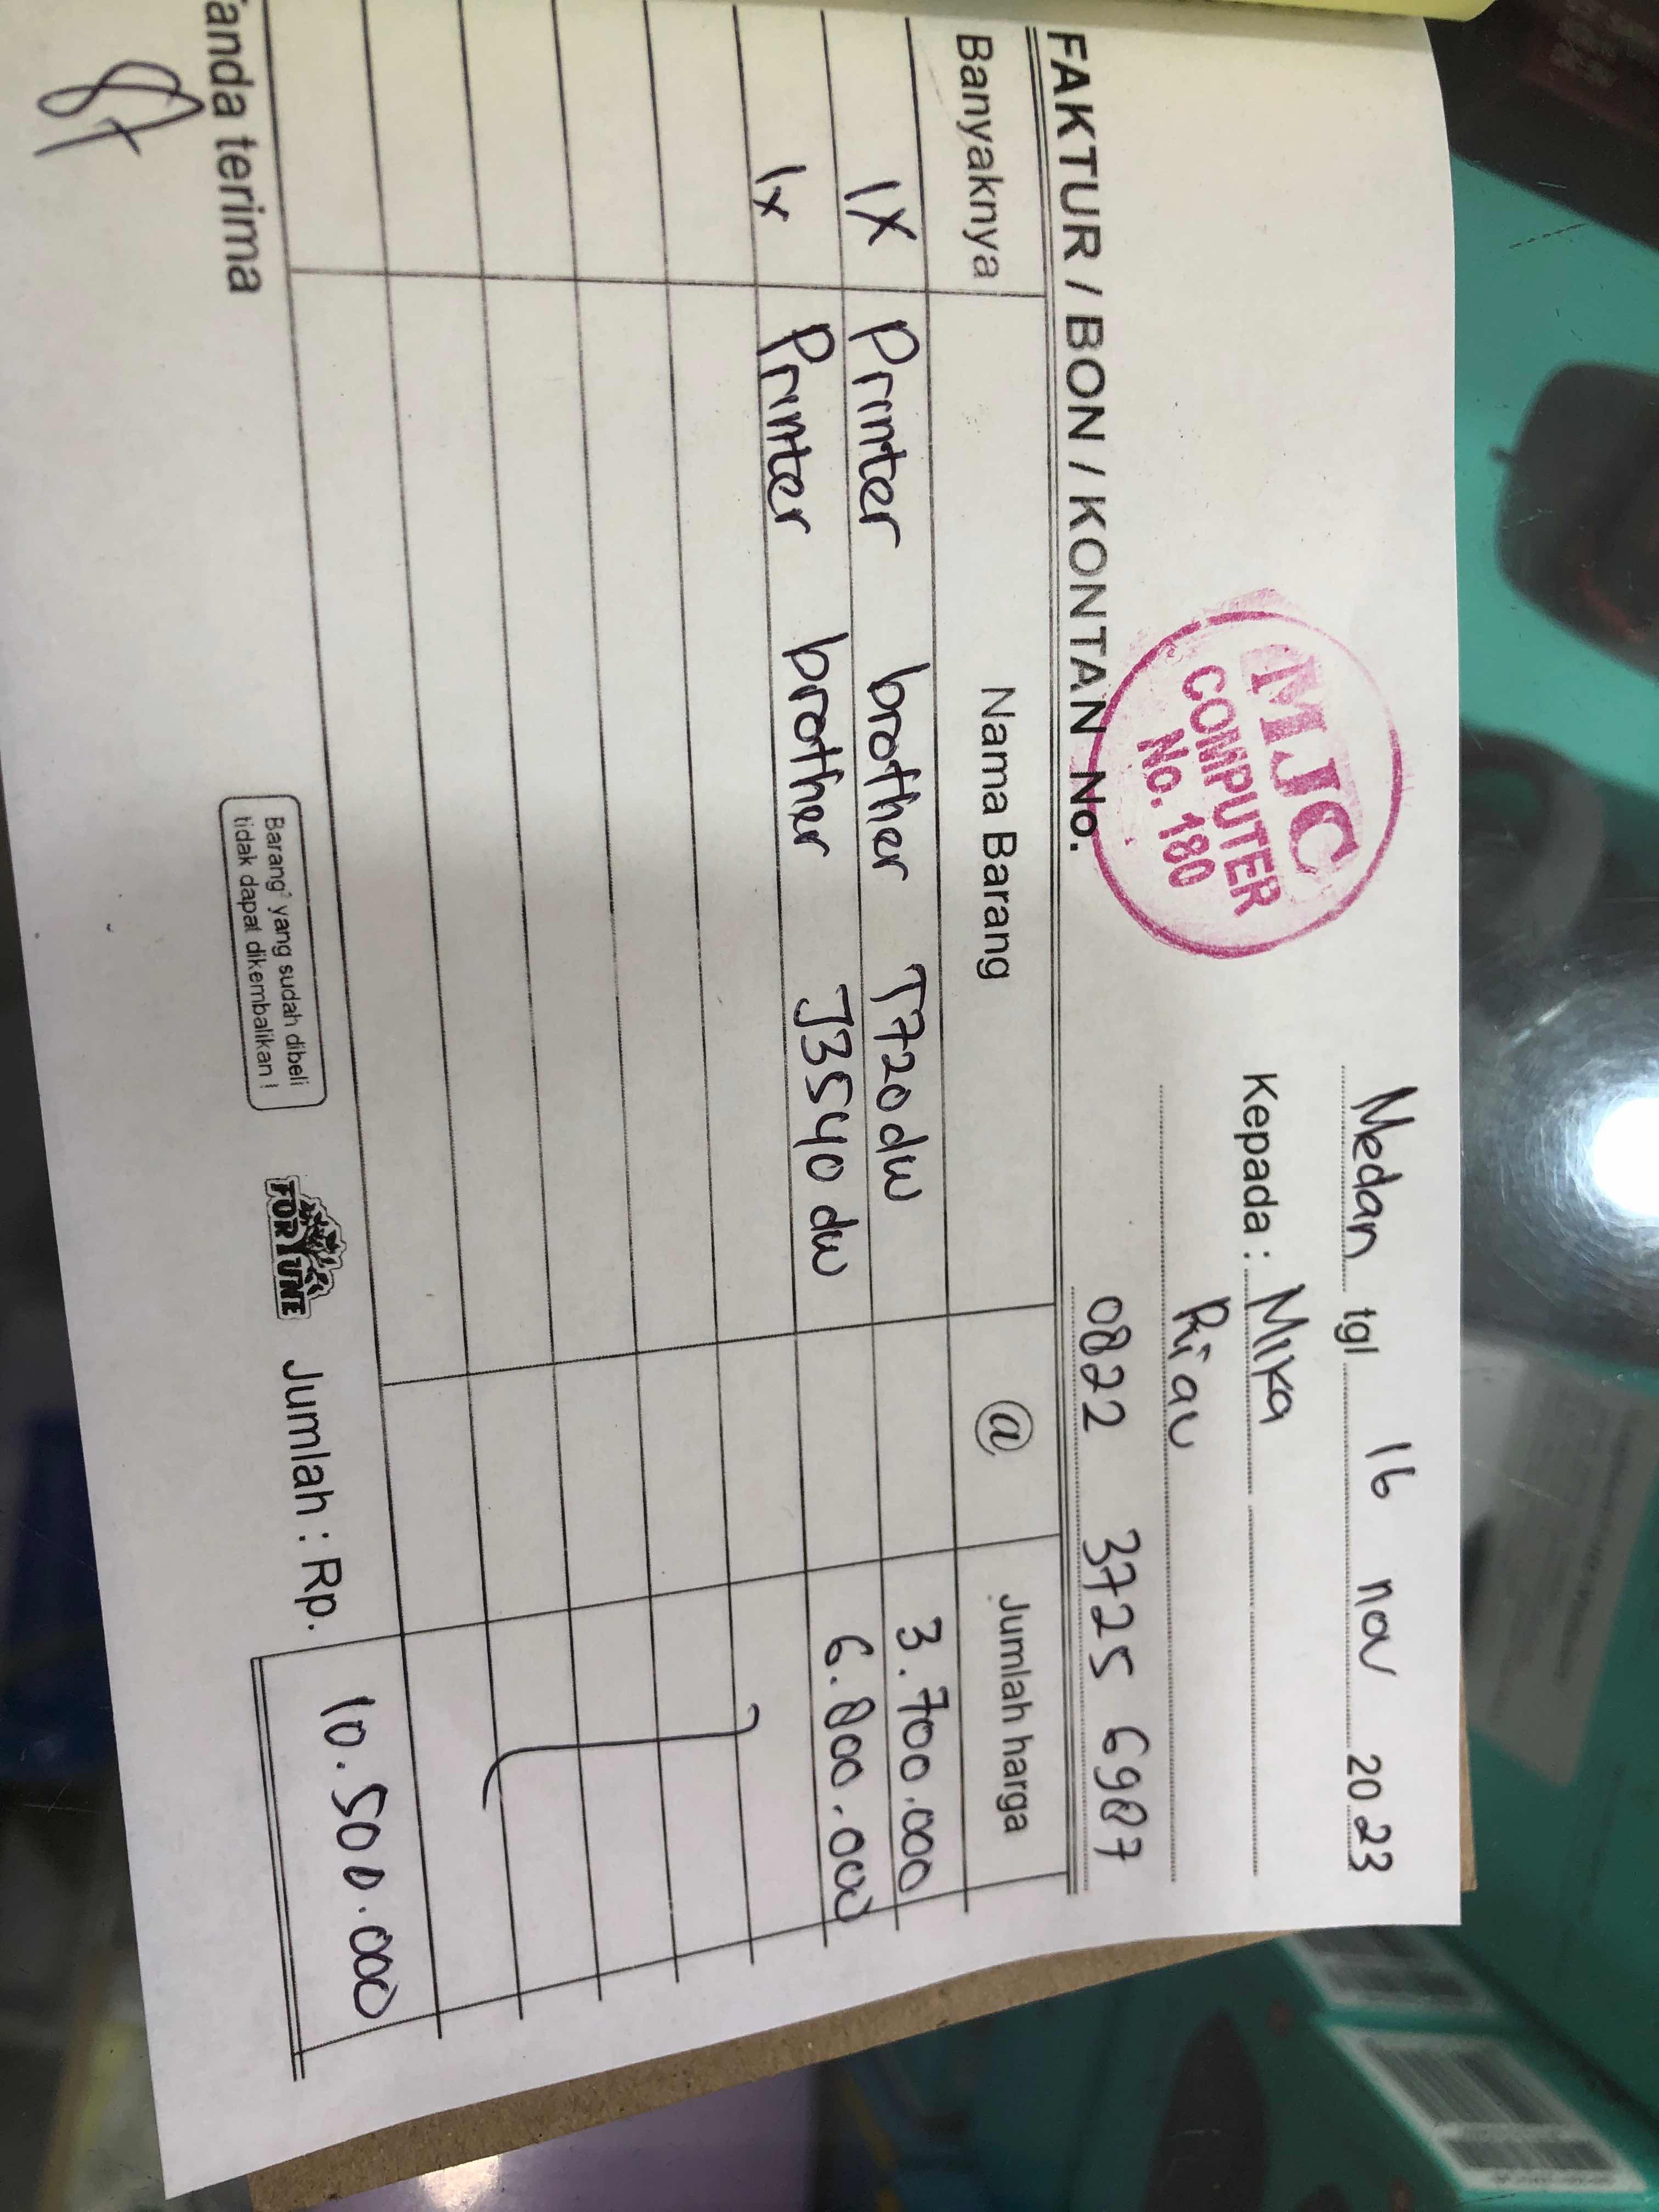 Medan tgl 16 nov 2023
MJC
COMPUTER
No. 180
Kepada : Mika
Riau
0822 3725 6987
FAKTUR / BON / KONTAN No.
Banyaknya Nama Barang @ Jumlah harga
1X Printer brother T720dw 3.700.000
1x Printer brother J3540dw 6.800.000
Tanda terima
Barang² yang sudah dibeli
tidak dapat dikembalikan !
FORTUNE
Jumlah : Rp. 10.500.000